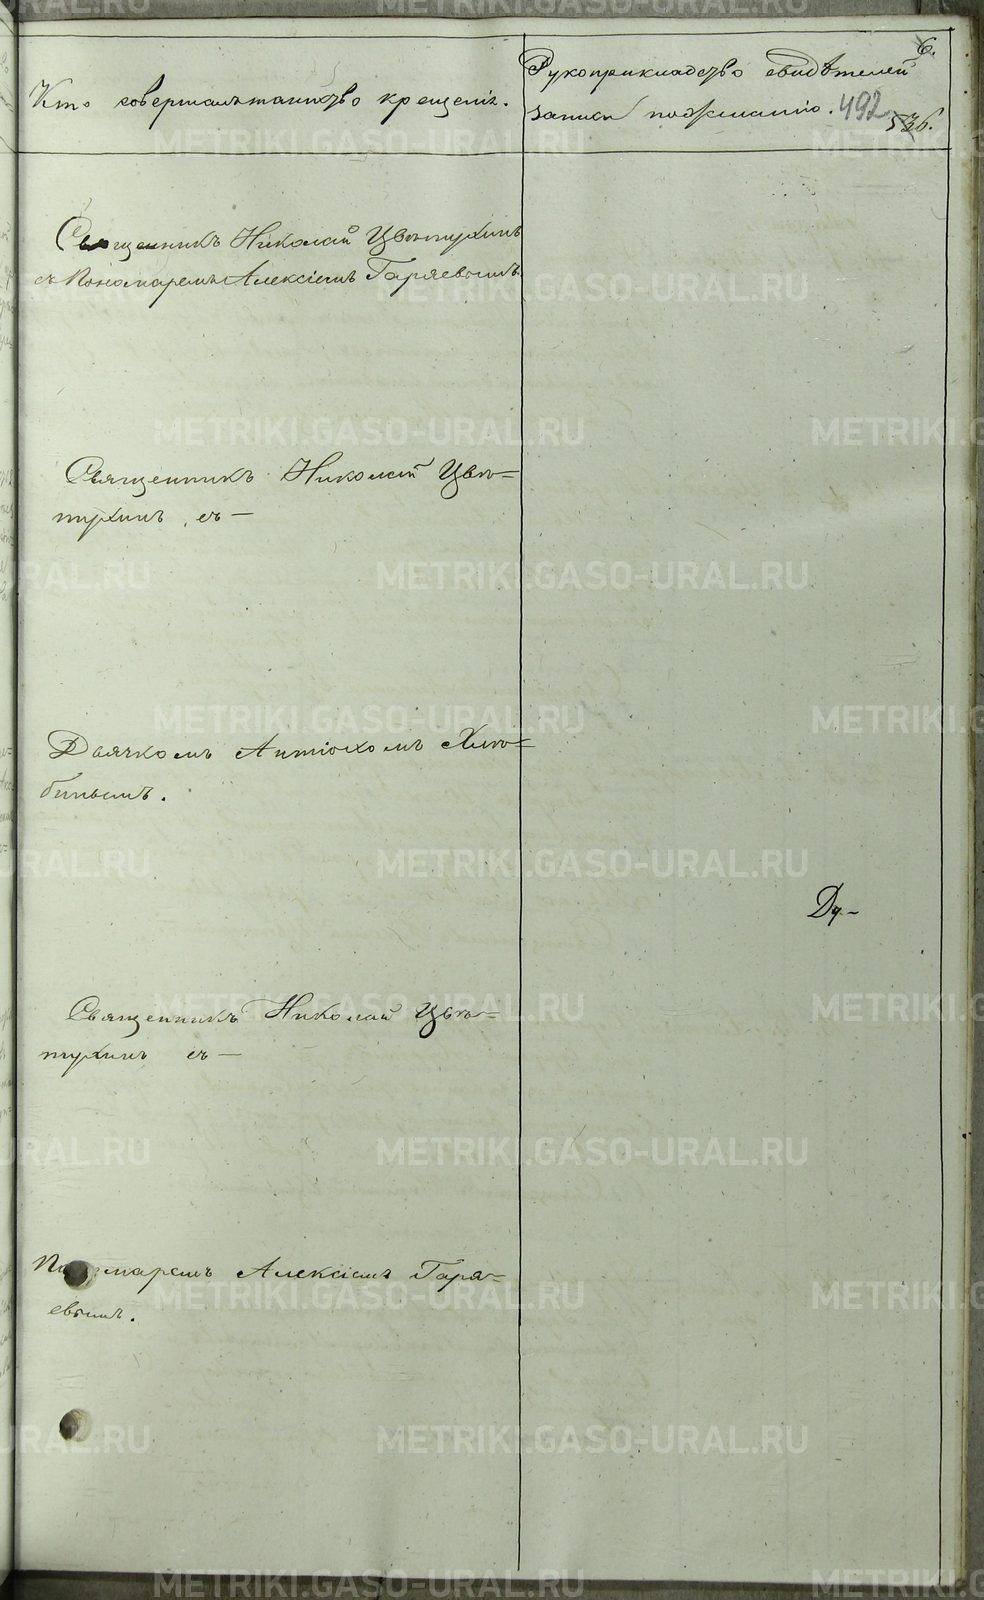 6.
Кто совершалъ таинство крещенія.
Рукоприкладство свидѣтелей
записи по желанію. 492
536.
Священникъ Николай Цвѣтухинъ
съ Пономаремъ Алексіемъ Гаряевымъ.
Священникъ Николай Цвѣ=
тухинъ, съ —
Дьячкомъ Антіохомъ Хлѣ=
бинымъ.
Ду-
Священникъ Николай Цвѣ=
тухинъ съ —
Пономаремъ Алексіемъ Гаря=
евымъ.
METRIKI.GASO-URAL.RU